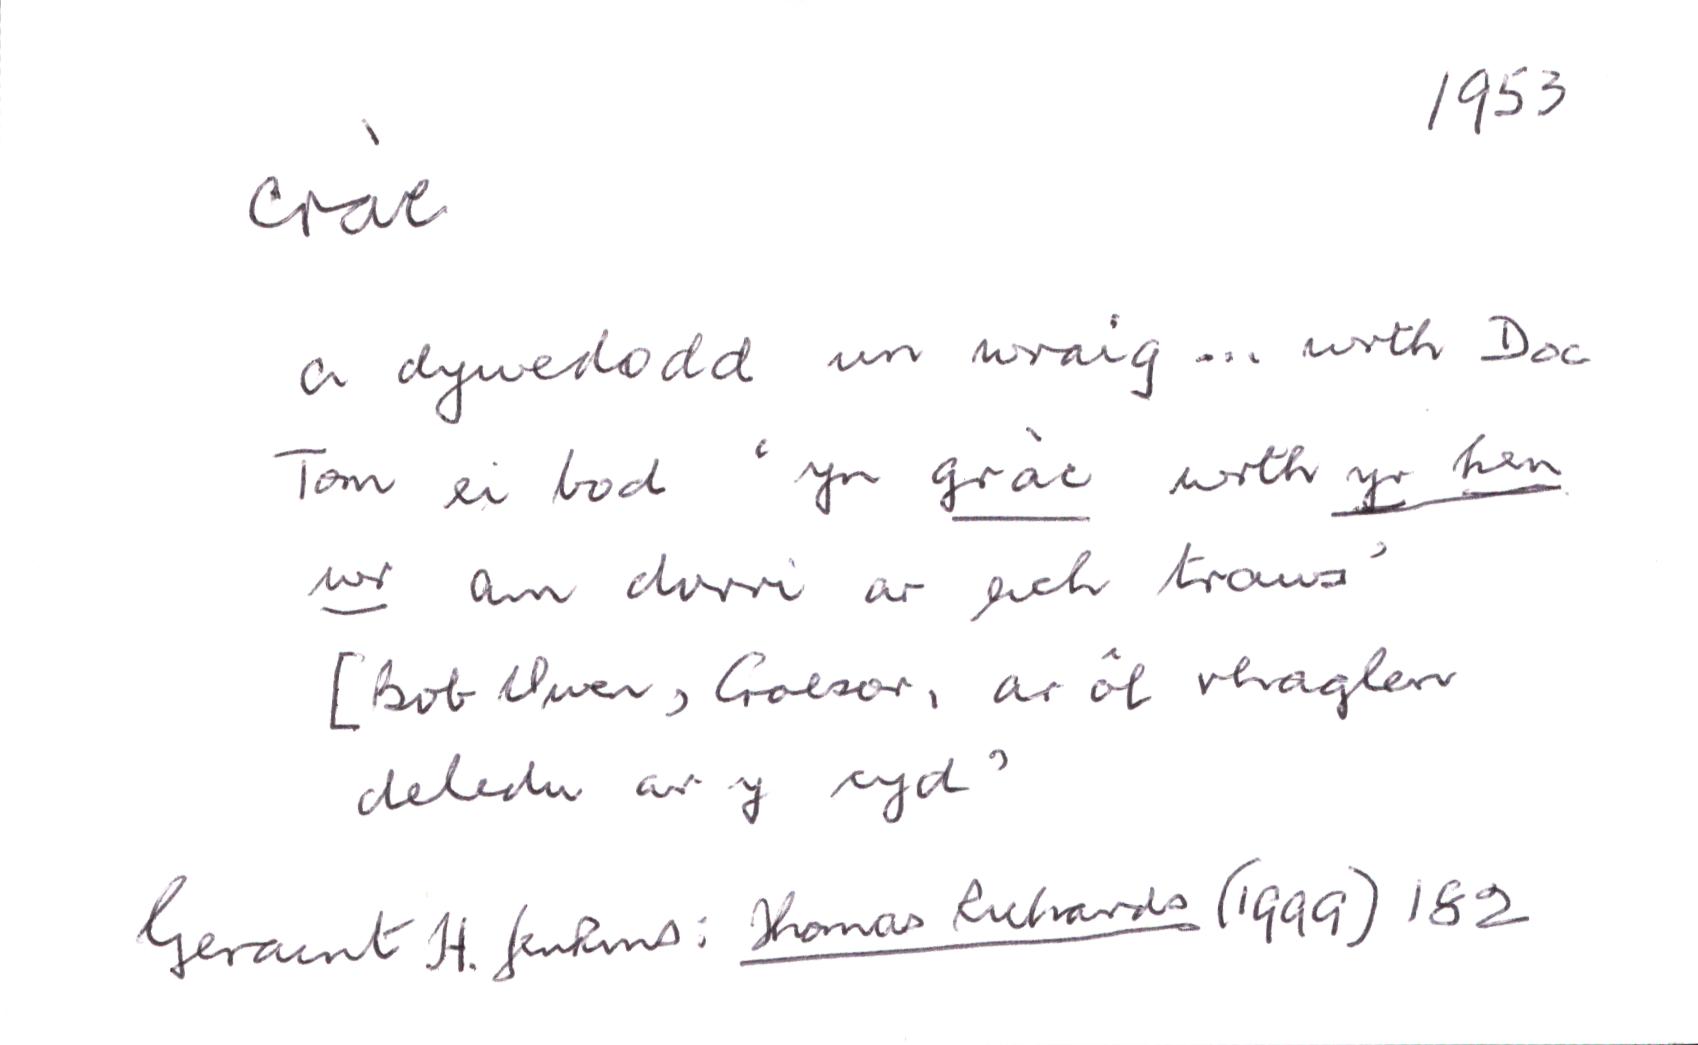 1953
cràc
a dywedodd un wraig ... wrth Doc
Tom ei bod ‘yn gràc wrth yr hen
wr am dorri ar eich traws’
[Bob Owen, Croesor, ar ôl rhaglen
deledu ar y cyd’
Geraint H. Jenkins: Thomas Richards (1999) 182